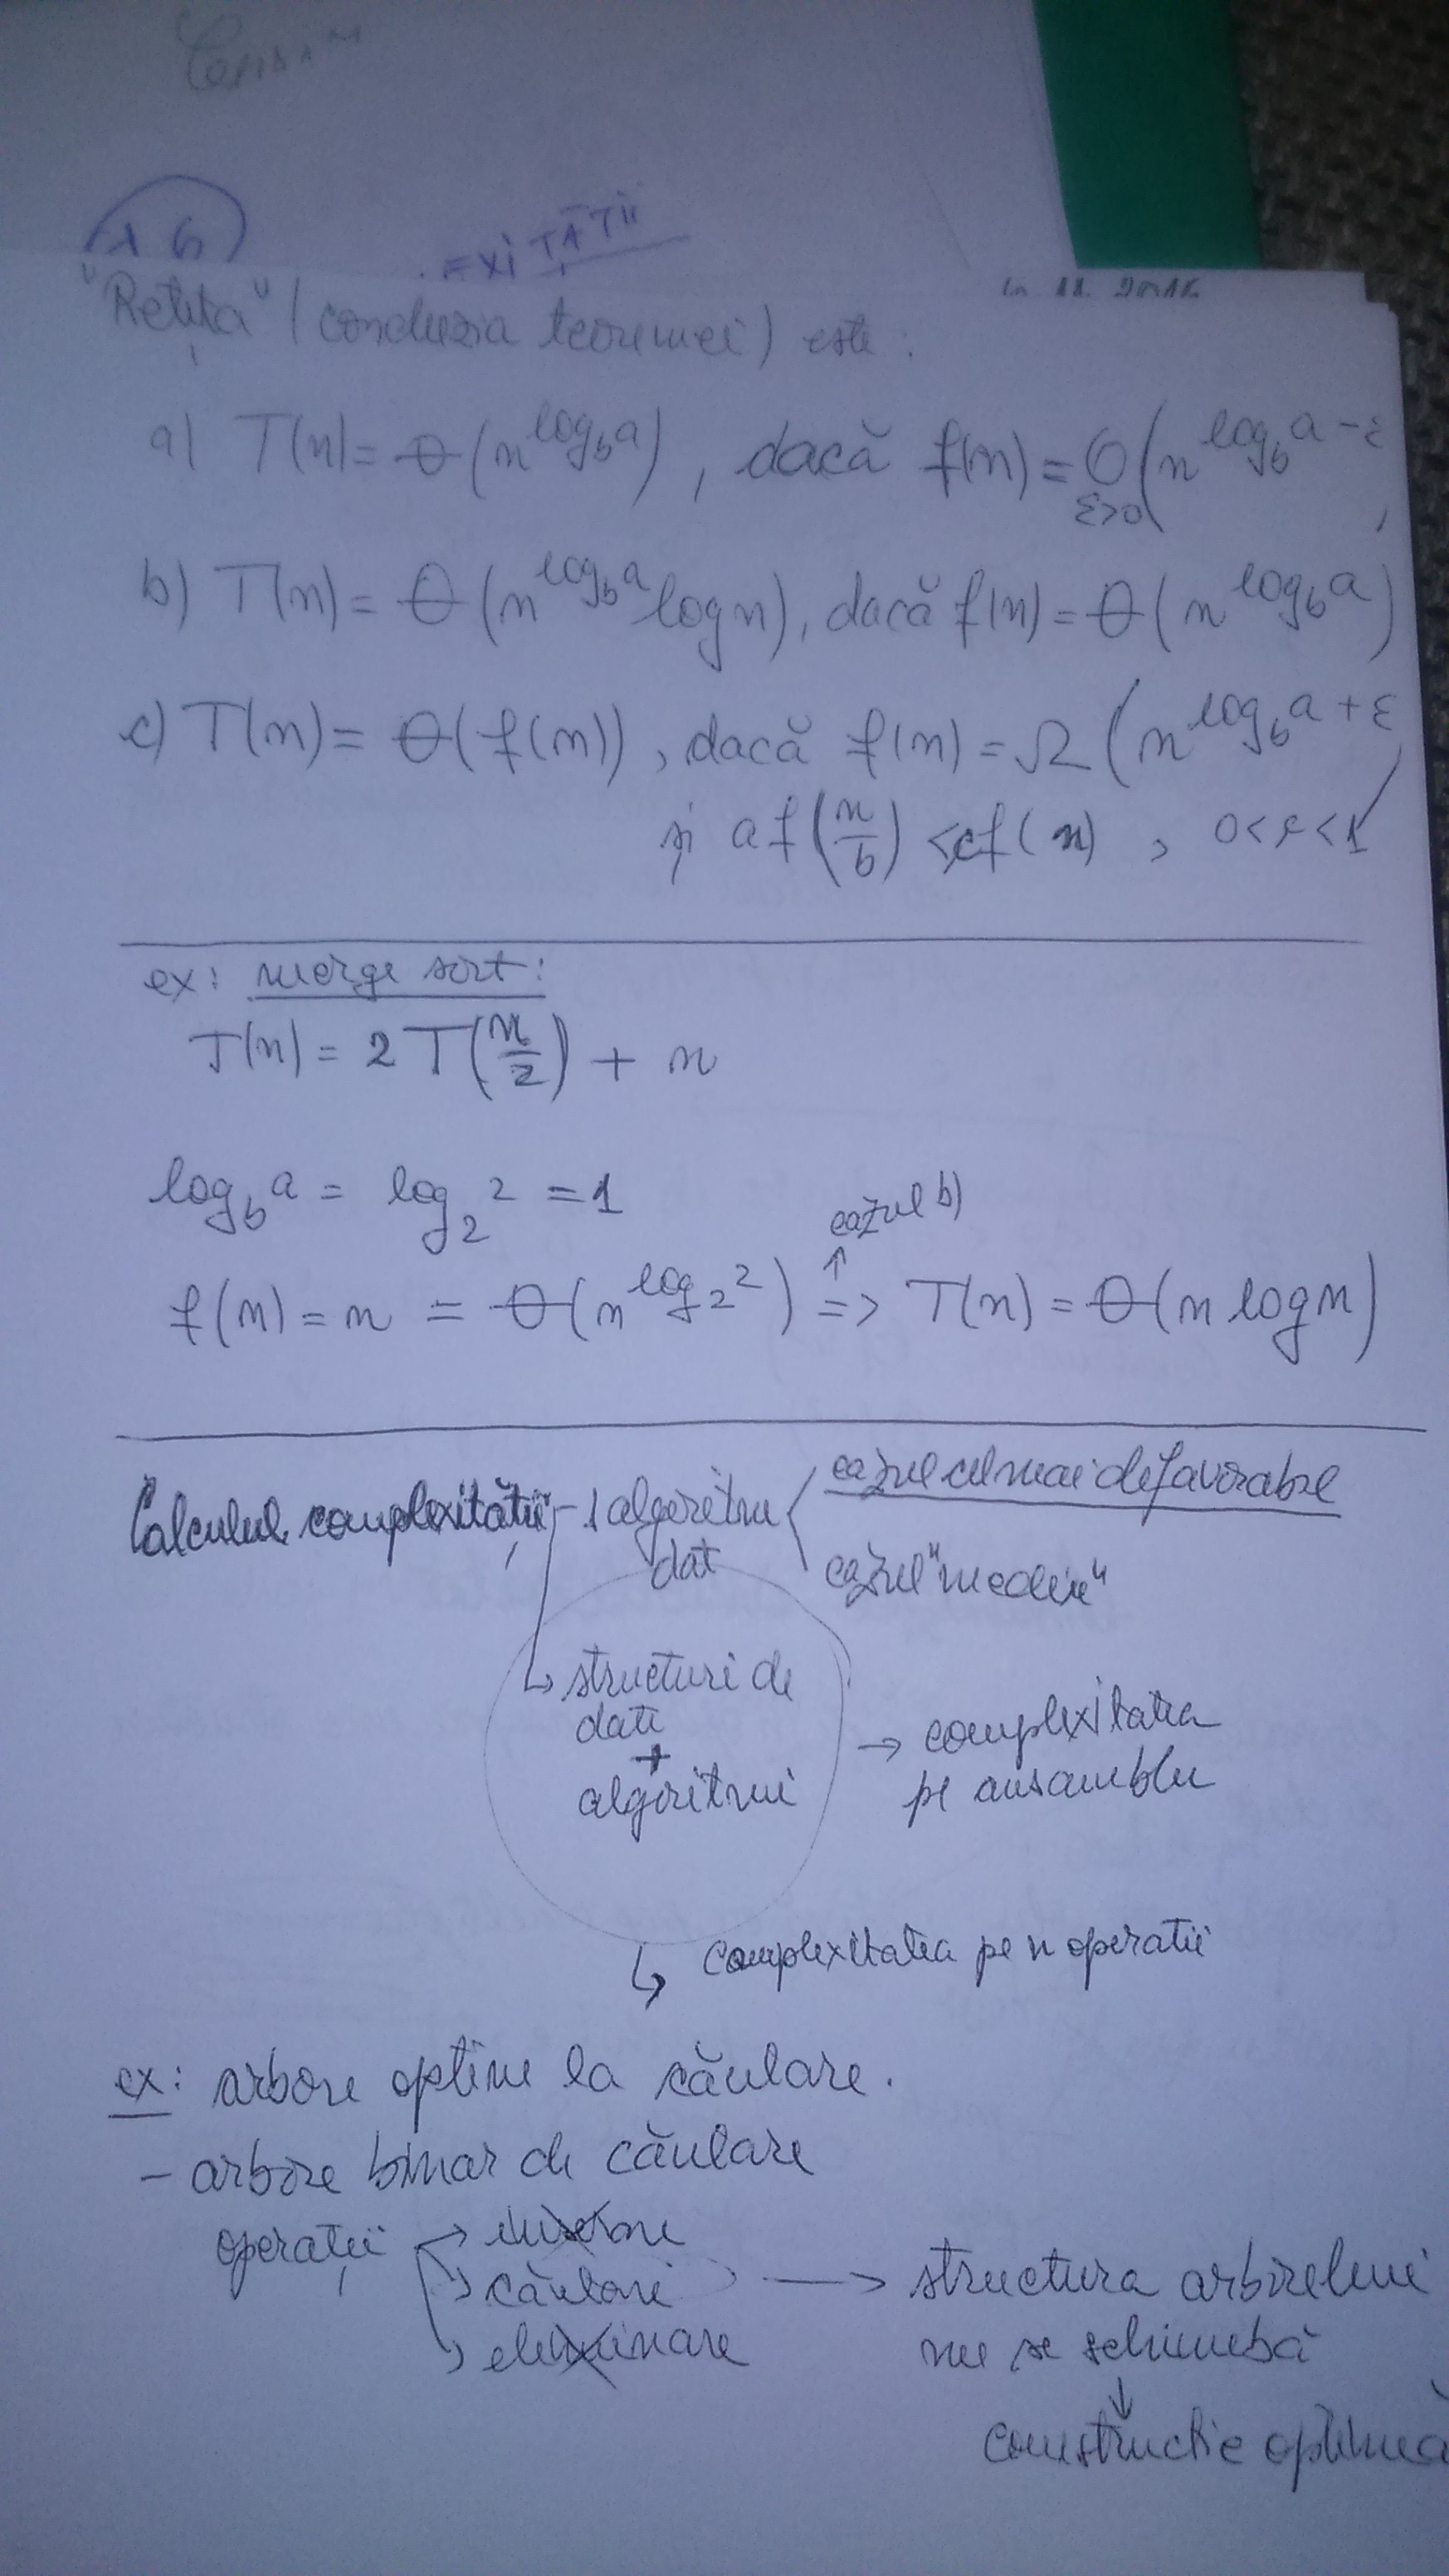 "Rețita" (concluzia teoremei) este:
a) T(n) = Θ(n^{log_b a}), dacă f(n) = O(n^{log_b a - ε}
ε>0 ,
b) T(n) = Θ(n^{log_b a} log n), dacă f(n) = Θ(n^{log_b a})
c) T(n) = Θ(f(n)), dacă f(n) = Ω(n^{log_b a + ε}
și a f(n/b) ≤ c f(n), 0<c<1
ex: merge sort:
T(n) = 2T(n/2) + n
log_b a = log_2 2 = 1
cazul b)
↑
f(n) = n = Θ(n^{log_2 2}) => T(n) = Θ(n log n)
Calculul complexității - 1 algoritm dat
cazul cel mai defavorabil
cazul "mediu"
↳ structuri de
date
+
algoritmi
→ complexitatea
pe ansamblu
↳ complexitatea pe n operatii
ex: arbore optim la căutare.
- arbore binar de căutare
operații → inserare
↘ căutare → structura arborelui
↘ eliminare nu se schimbă
↓
constructie optimă